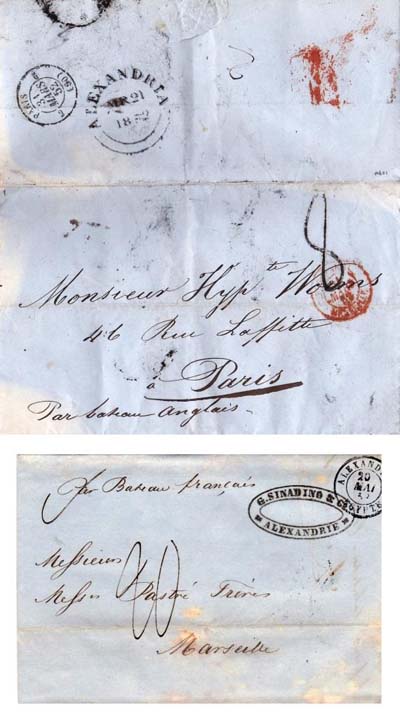 ALEXANDRIA
MR 21
1852
PARIS
31
MARS
52
(60)
8
Monsieur Hypte Worms
46 Rue Laffitte
à Paris
Par bateau Anglais
par Bateau français
G. SINADINO & Co
ALEXANDRIE
ALEXAND
20
MAI
Messieurs
Messrs Pastré Frères
Marseille